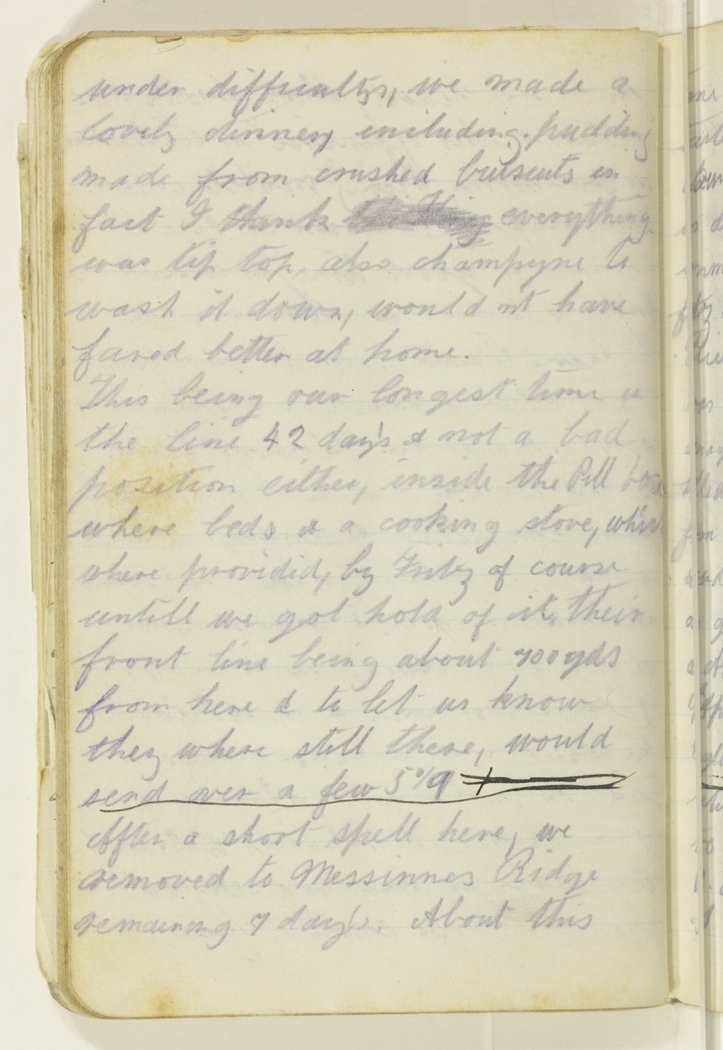 under difficultys, we made a
lovely dinner, including pudding
made from crushed buiscuts in
fact I think everything
was tip top, also champyne to
wash it down, would nt have
fared better at home.
This being our longest time in
the line 42 day's & not a bad
position either, inside the Pill box
where beds & a cooking stove, which
where providid, by Fritz of course
untill we got hold of it, their
front line being about 700 yds
from here & to let us know
they where still there, would
send over a few 5%9
After a short spell here, we
removed to Messinnes Ridge
remaining 7 day's. About this